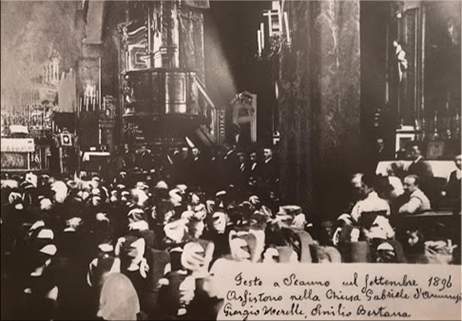 Feste a Scanno nel Settembre 1896
Assistono nella Chiesa Gabriele d'Annunzi
Giorgio Morelli, Emilio Bertana